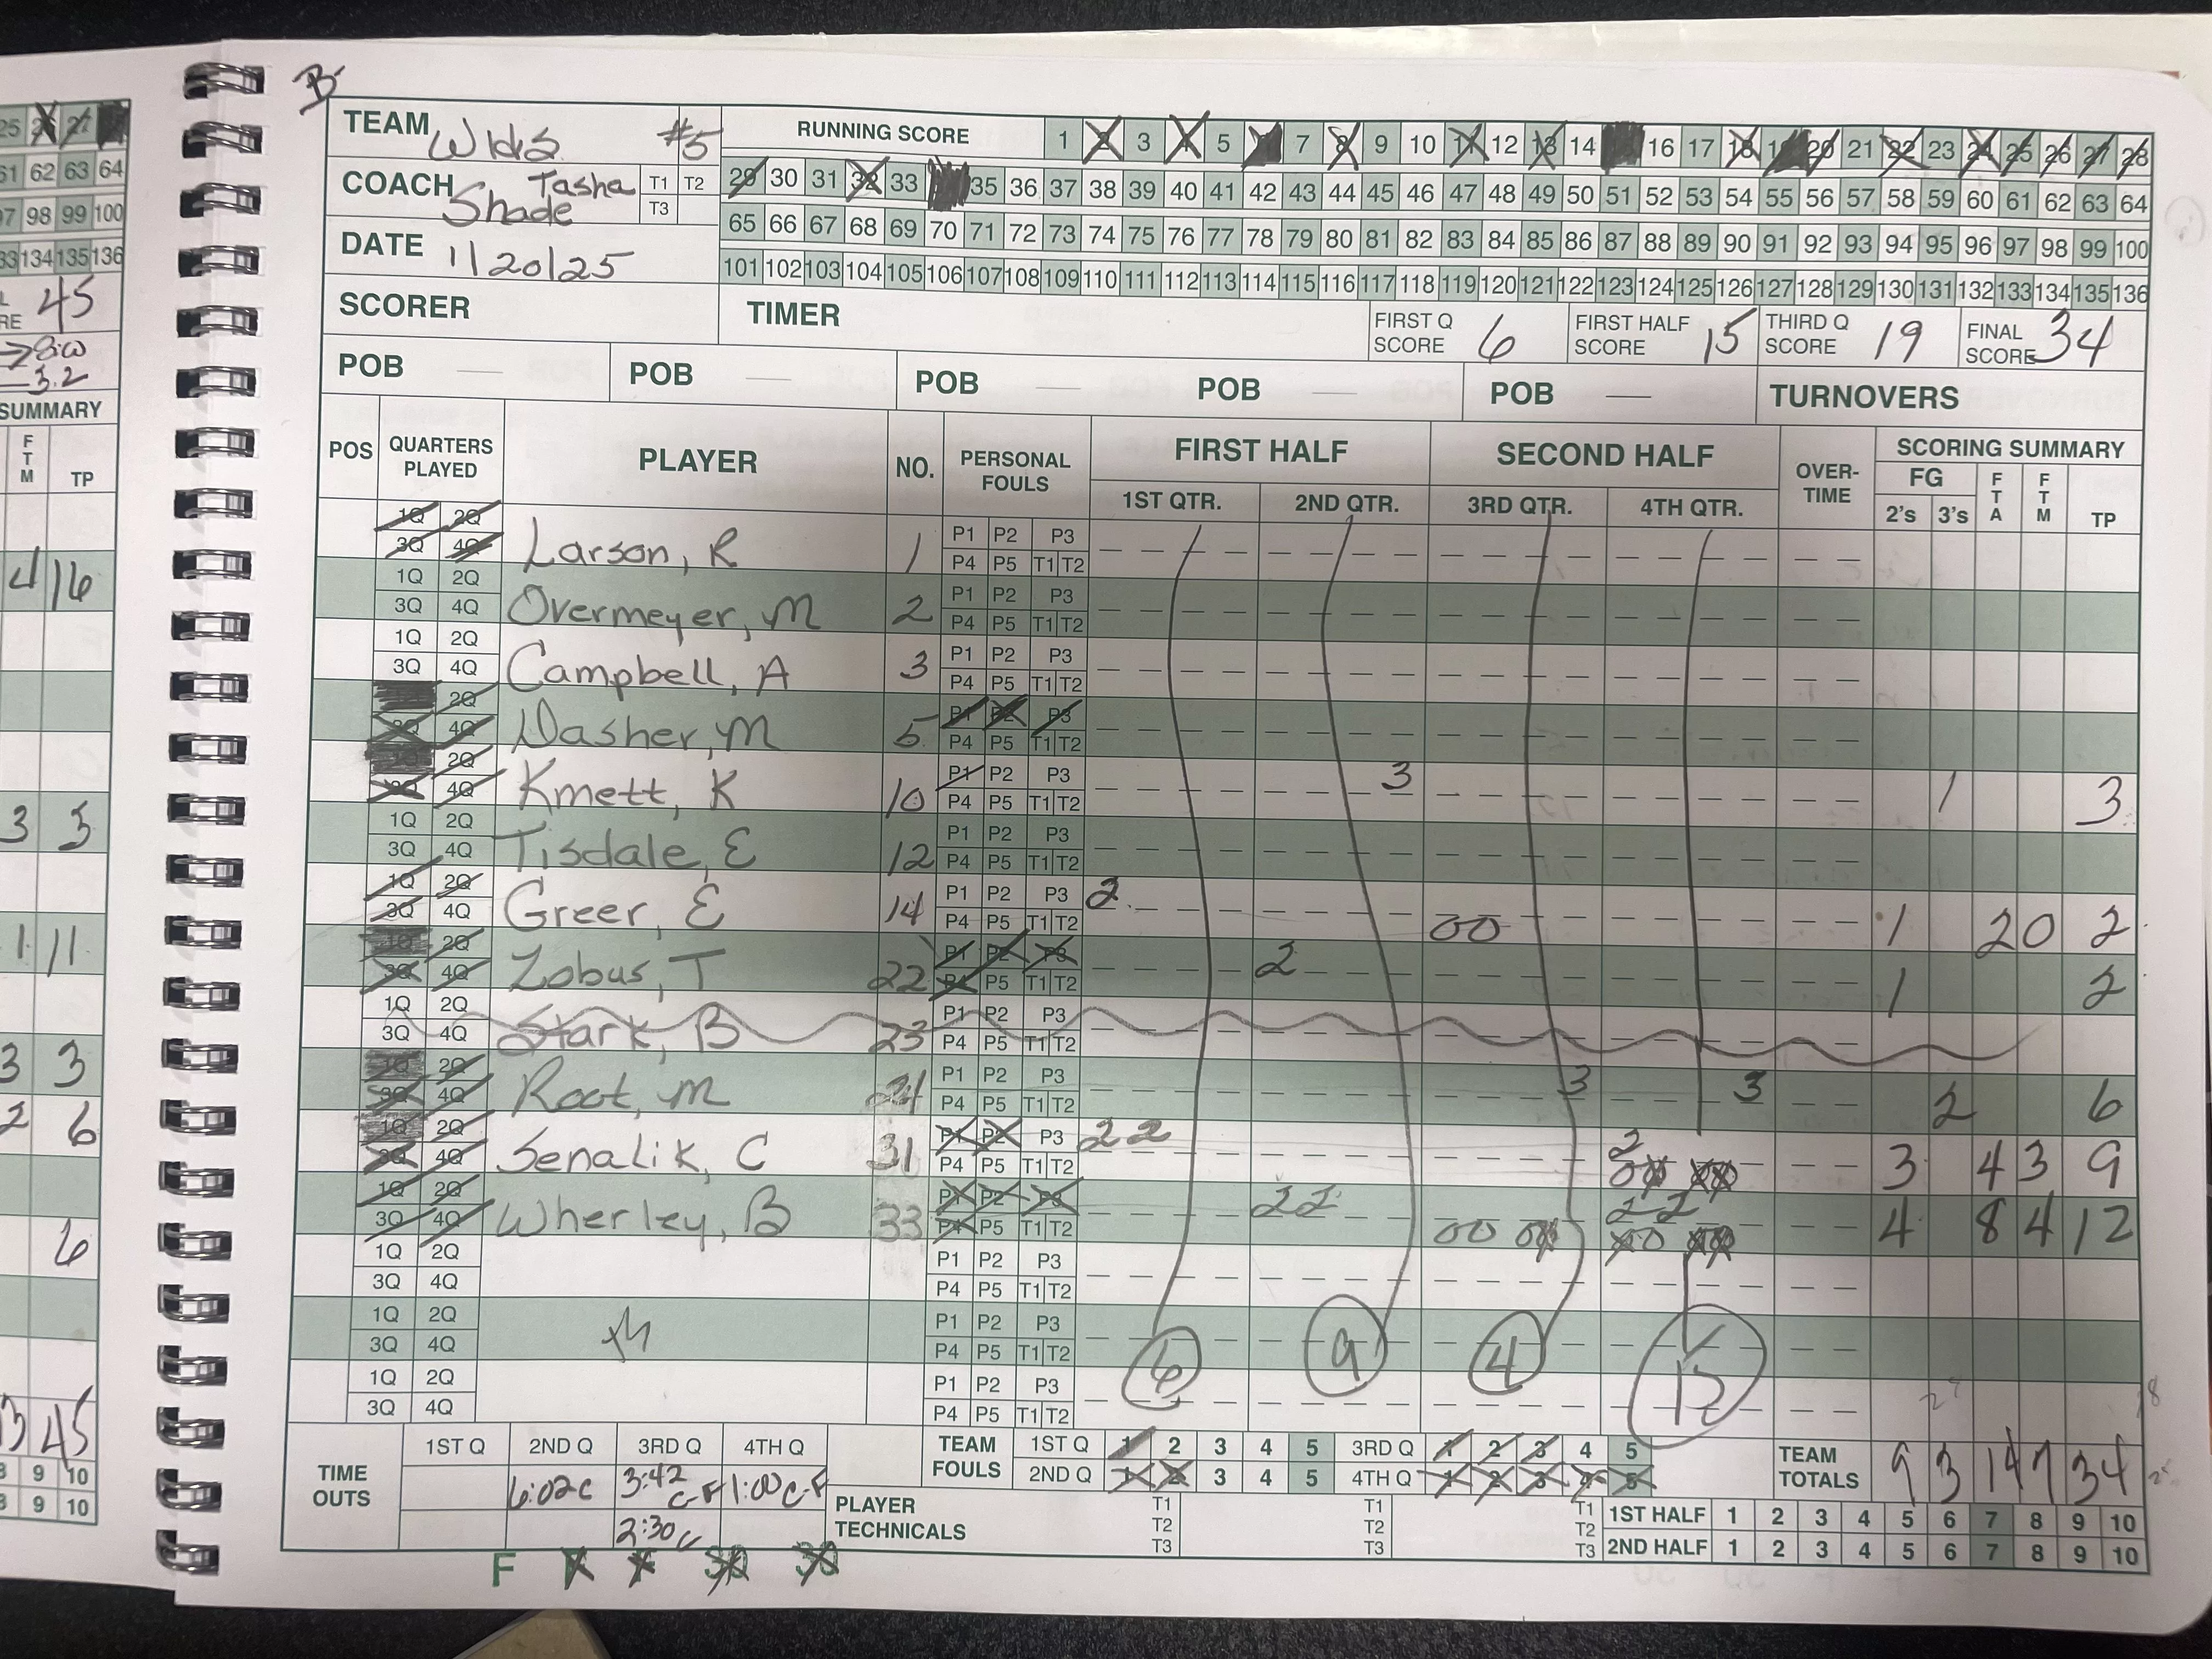 B
TEAM Wlds #5
RUNNING SCORE
1 2 3 4 5 7 8 9 10 11 12 13 14 16 17 18 19 20 21 22 23 24 25 26 27 28
COACH Tasha Shade T1 T2 T3
29 30 31 32 33 35 36 37 38 39 40 41 42 43 44 45 46 47 48 49 50 51 52 53 54 55 56 57 58 59 60 61 62 63 64
65 66 67 68 69 70 71 72 73 74 75 76 77 78 79 80 81 82 83 84 85 86 87 88 89 90 91 92 93 94 95 96 97 98 99 100
DATE 1/20/25
101 102 103 104 105 106 107 108 109 110 111 112 113 114 115 116 117 118 119 120 121 122 123 124 125 126 127 128 129 130 131 132 133 134 135 136
SCORER TIMER FIRST Q SCORE 6 FIRST HALF SCORE 15 THIRD Q SCORE 19 FINAL SCORE 34
POB — POB — POB — POB — POB — TURNOVERS
POS QUARTERS PLAYED PLAYER NO. PERSONAL FOULS FIRST HALF SECOND HALF OVER-TIME SCORING SUMMARY
1ST QTR. 2ND QTR. 3RD QTR. 4TH QTR. FG 2's 3's FTA FTM TP
1Q 2Q 3Q 4Q Larson, R 1 P1 P2 P3 P4 P5 T1 T2
1Q 2Q 3Q 4Q Overmeyer, M 2 P1 P2 P3 P4 P5 T1 T2
1Q 2Q 3Q 4Q Campbell, A 3 P1 P2 P3 P4 P5 T1 T2
2Q 3Q 4Q Dasher, M 5 P1 P2 P3 P4 P5 T1 T2
1Q 2Q 3Q 4Q Kmett, K 10 P1 P2 P3 P4 P5 T1 T2 3 1 3
1Q 2Q 3Q 4Q Tisdale, E 12 P1 P2 P3 P4 P5 T1 T2
1Q 2Q 3Q 4Q Greer, E 14 P1 P2 P3 P4 P5 T1 T2 2 00 1 2 0 2
1Q 2Q 3Q 4Q Zobus, T 22 P1 P2 P3 P4 P5 T1 T2 2 1 2
1Q 2Q 3Q 4Q Stark, B 23 P1 P2 P3 P4 P5 T1 T2
1Q 2Q 3Q 4Q Root, M 24 P1 P2 P3 P4 P5 T1 T2 3 3 2 6
1Q 2Q 3Q 4Q Senalik, C 31 P1 P2 P3 P4 P5 T1 T2 2 2 2 3 4 3 9
1Q 2Q 3Q 4Q Wherley, B 33 P1 P2 P3 P4 P5 T1 T2 2 2 00 2 2 4 8 4 12
1Q 2Q 3Q 4Q P1 P2 P3 P4 P5 T1 T2
1Q 2Q 3Q 4Q P1 P2 P3 P4 P5 T1 T2 6 9 4 15
1Q 2Q 3Q 4Q P1 P2 P3 P4 P5 T1 T2
TIME OUTS 1ST Q 2ND Q 3RD Q 4TH Q
6:02 C 3:42 C-F 1:00 C-F
2:30 C
TEAM FOULS 1ST Q 1 2 3 4 5 3RD Q 1 2 3 4 5
2ND Q 1 2 3 4 5 4TH Q 1 2 3 4 5
TEAM TOTALS 9 3 14 7 34
PLAYER TECHNICALS T1 T2 T3 T1 T2 T3 T1 T2 T3
1ST HALF 1 2 3 4 5 6 7 8 9 10
2ND HALF 1 2 3 4 5 6 7 8 9 10
F F F 30 30
25 26 27
61 62 63 64
97 98 99 100
133 134 135 136
45
8:00
3.2
SUMMARY
FTM TP
4 16
3 3
1 11
3 3
2 6
6
13 45
8 9 10
8 9 10